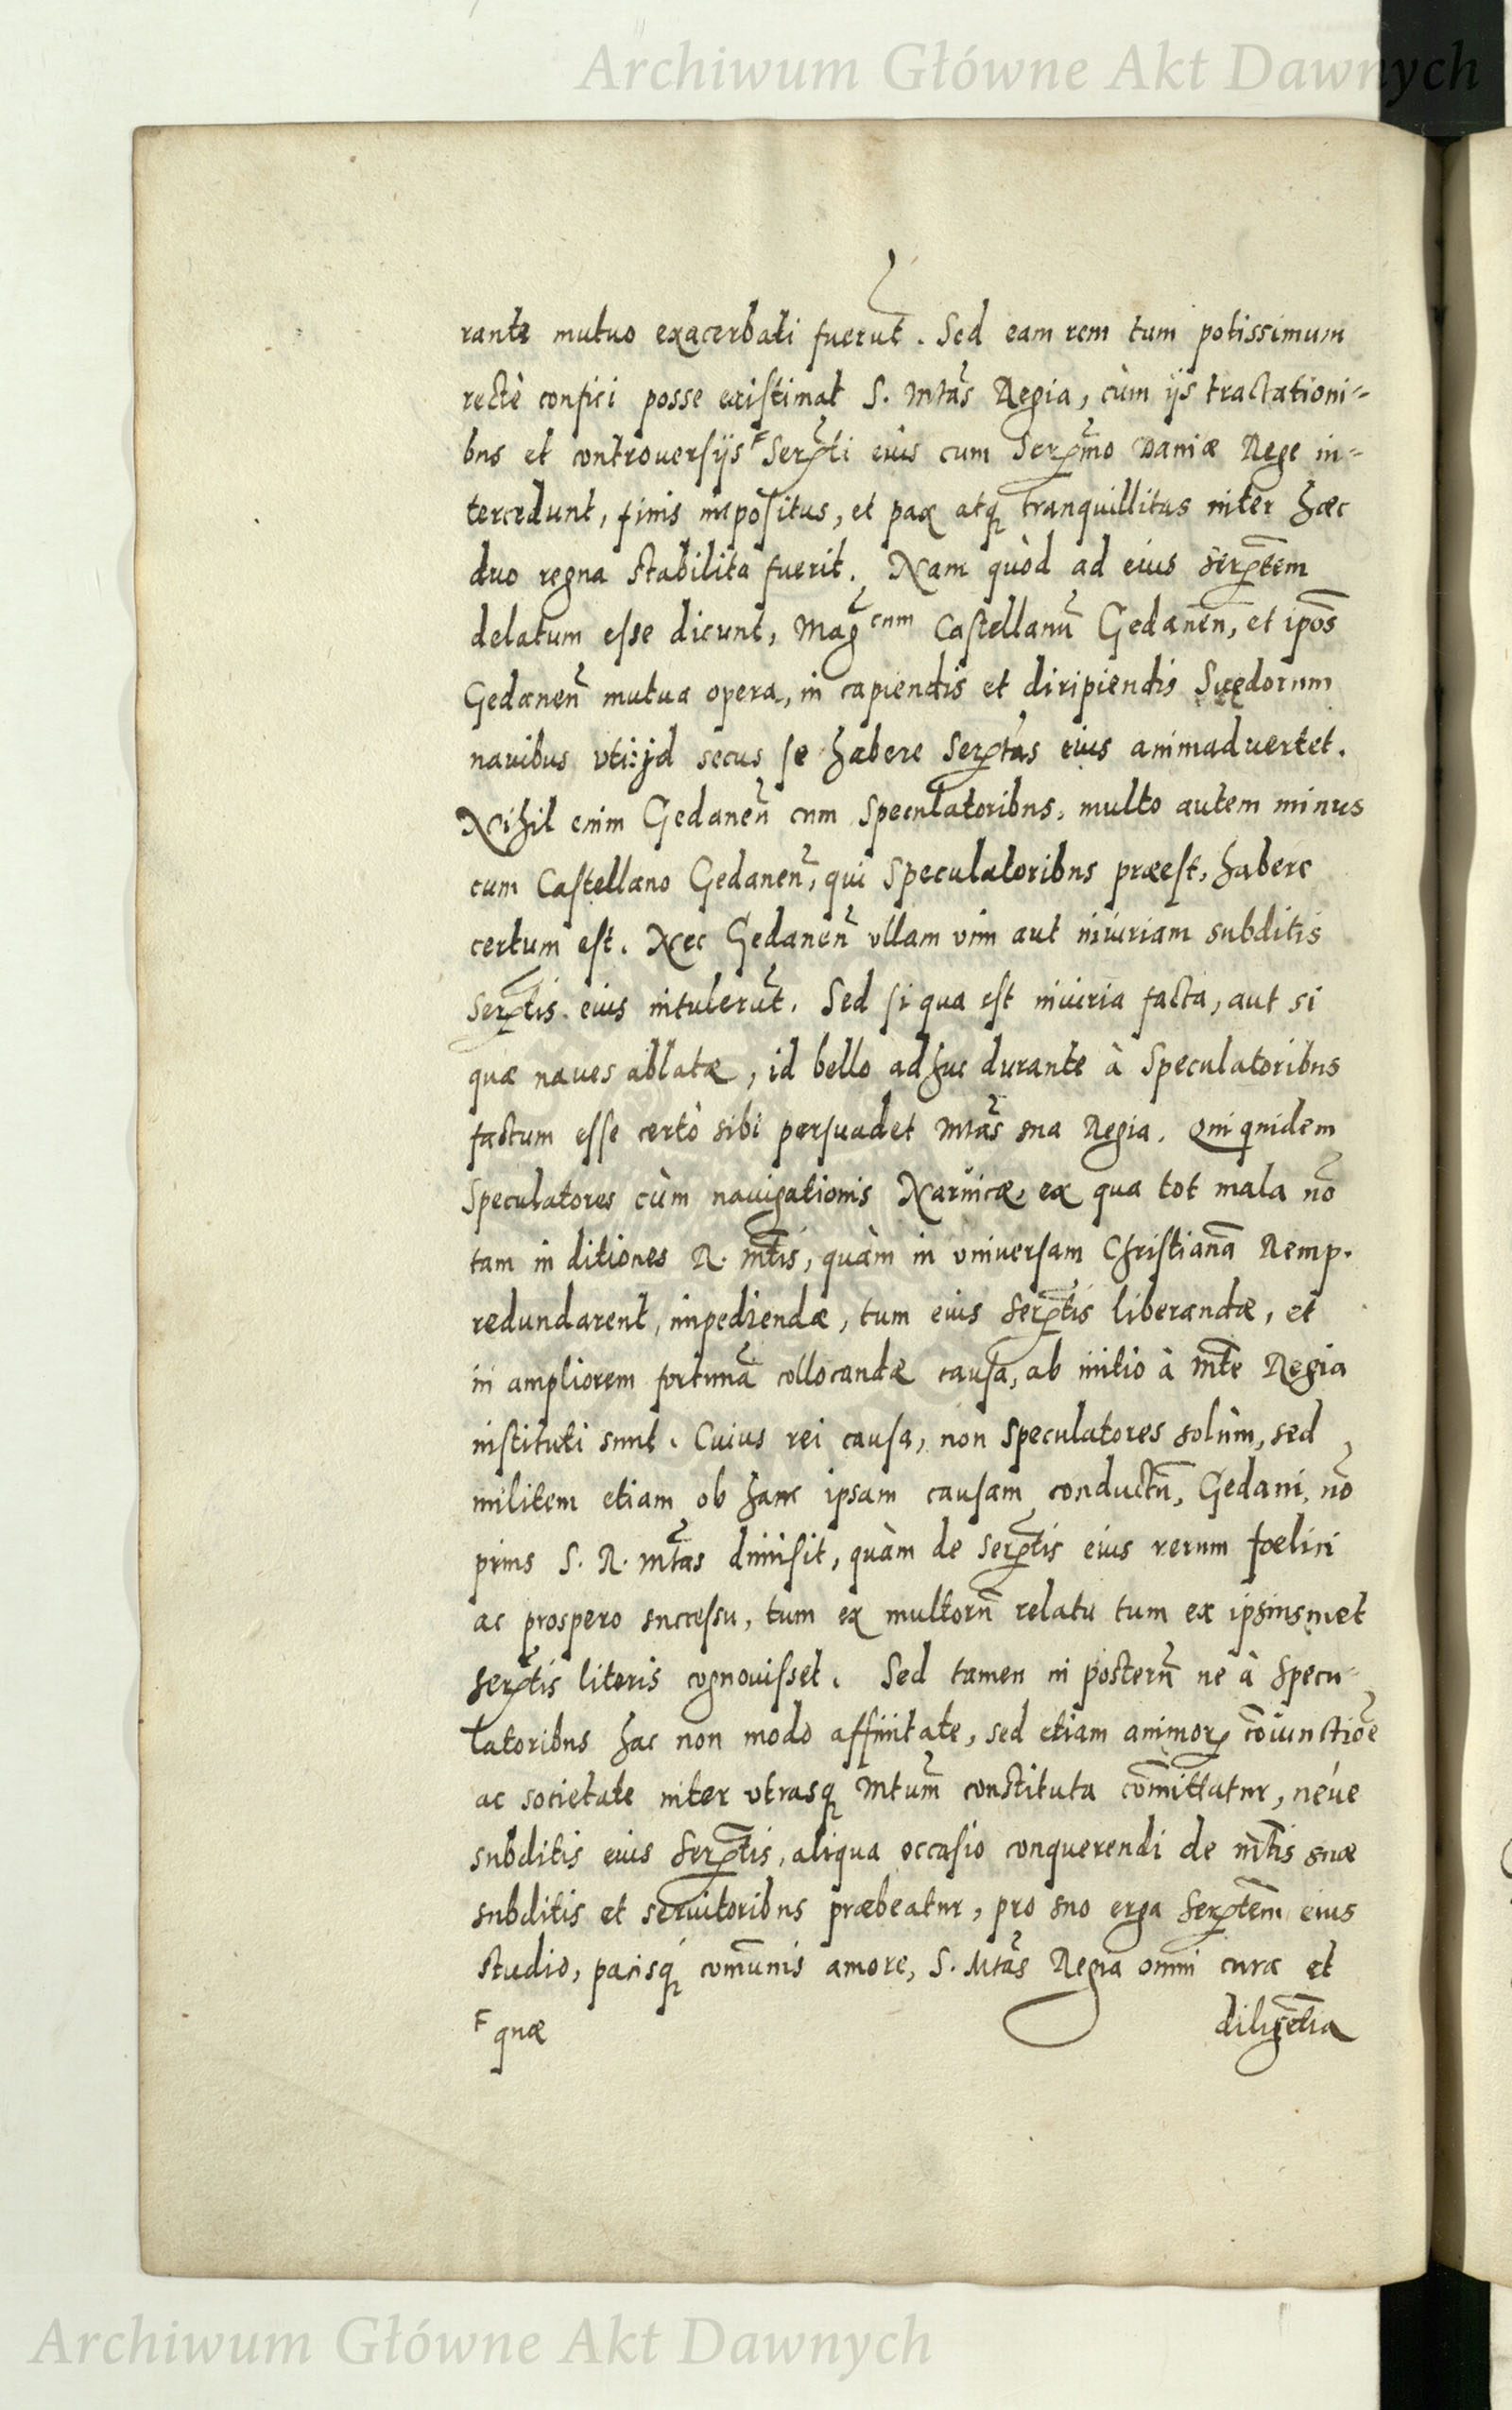 Archiwum Główne Akt Dawnych
rante mutuo exacerbati fuerūt. Sed eam rem tum potissimum
rectè confici posse existimat S. Mtas Regia, cùm ijs tractationi-
bus et controuersijs F Serti eius cum Sermo Daniæ Rege in-
tercedunt, finis impositus, et pax atq tranquillitas inter hæc
duo regna stabilita fuerit. Nam quòd ad eius Sertem
delatum esse dicunt, Mag cum Castellanū Gedanen, et ipos
Gedanen mutua opera, in capiendis et diripiendis Suedorum
nauibus vti: id secus se habere Sertas eius animaduertet.
Nihil enim Gedanen cum Speculatoribus, multo autem minus
cum Castellano Gedanen, qui Speculatoribus præest, habere
certum est. Nec Gedanen vllam vim aut iniuriam subditis
Sertis eius intulerūt. Sed si qua est iniuria facta, aut si
quæ naues ablatæ, id bello adhuc durante à Speculatoribus
factum esse certò sibi persuadet Mtas sua Regia. Qui quidem
Speculatores cùm nauigationis Naruicæ, ex qua tot mala nō
tam in ditiones R. Mtis, quàm in vniuersam Christianā Remp.
redundarent, impediendæ, tum eius Sertis liberandæ, et
in ampliorem fortunā collocandæ causa, ab initio à Mte Regia
instituti sunt. Cuius rei causa, non Speculatores solùm, sed
militem etiam ob hanc ipsam causam conductū, Gedani, nō
prius S. R. Mtas dimisit, quàm de Sertis eius rerum foelici
ac prospero successu, tum ex multorū relatu tum ex ipsiusmet
Sertis literis cognouisset. Sed tamen in posterū ne à Specu-
latoribus hac non modo affinitate, sed etiam animor coniunctiōe
ac societate inter vtrasq Mtum constituta cōmittatur, néue
subditis eius Sertis, aliqua occasio conquerendi de Mtis suæ
subditis et seruitoribus præbeatur, pro suo erga Sertem eius
studio, pacisq cōmunis amore, S. Mtas Regia omni cura et
F quæ
diligētia
Archiwum Główne Akt Dawnych